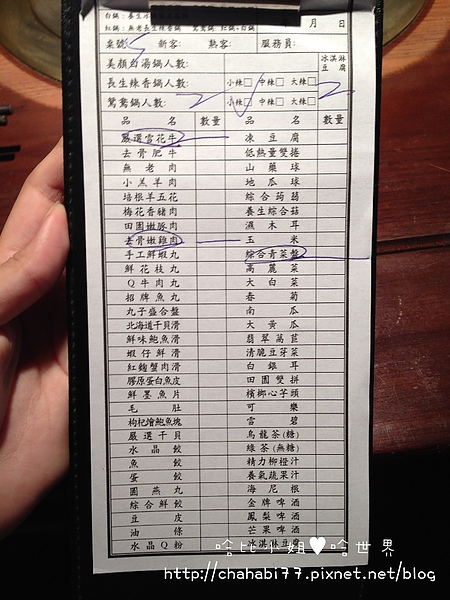 白鍋:養生水
紅鍋:無老長生辣香鍋 鴛鴦鍋:紅鍋+白鍋
月 日
桌號 5 新客: 熟客: 服務員:
美顏白湯鍋人數: 冰淇淋豆腐
長生辣香鍋人數: 小辣□ 中辣□ 大辣□
鴛鴦鍋人數: 2 小辣□ 中辣□ 大辣□ 2
品名 數量 品名 數量
嚴選雪花牛 凍豆腐
去骨肥牛 低熱量雙捲
無老肉 山藥球
小羔羊肉 地瓜球
培根羊五花 綜合蒟蒻
梅花香豬肉 養生綜合菇
田園嫩豚肉 濕木耳
去骨嫩雞肉 玉米
手工鮮蝦丸 綜合青菜盤
鮮花枝丸 高麗菜
Q牛肉丸 大白菜
招牌魚丸 春菊
丸子盛合盤 南瓜
北海道干貝滑 大黃瓜
鮮味鮑魚滑 翡翠萵苣
蝦仔鮮滑 清脆豆芽菜
紅麴蟹肉滑 白銀耳
膠原蛋白魚皮 田園雙拼
鮮墨魚片 檳榔心芋頭
毛肚 可樂
枸杞燴鮑魚塊 雪碧
嚴選干貝 烏龍茶(糖)
水晶餃 綠茶(無糖)
魚餃 精力柳橙汁
蛋餃 養氣蔬果汁
圓燕丸 海尼根
綜合鮮餃 金牌啤酒
豆皮 鳳梨啤酒
油條 芒果啤酒
水晶Q粉 冰淇淋豆腐
哈比小姐♥哈世界
http://chahabi77.pixnet.net/blog